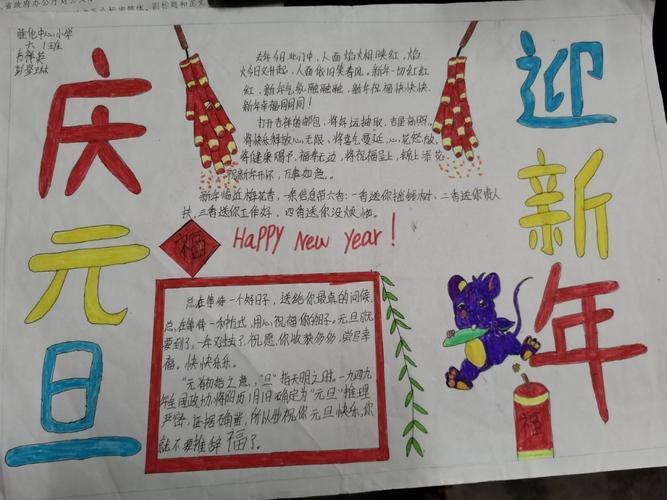 省政府办公厅
六.1班
庆元旦
迎新年
去年今日此门中，人面焰火相映红，焰
火今日又升起，人面依旧笑春风，新年一切红红
红，新年气象融融融，新年祝福快快快，
新年幸福同同同！
打开吉祥的邮包，将好运抽取，吉星高照，
将快乐释放，心无限，将喜气蔓延，心花怒放，
将健康赐予，福寿无边，将祝福呈上，锦上添花
祝新年开怀，万事如意。
新年临近梅花香，一条信息带六香：一香送你摇钱树，二香送你贵人
扶，三香送你工作好，四香送你没烦恼。
福
HAPPY New Year！
总在等待一个好日子，送给你最真的问候，
总在等待一种方式，用心祝福你的日子。元旦就
要到了，一年又过去了，祝愿你收获多多，尝尽幸
福。快快乐乐。
"元"有初始之意，"旦"指天明之时。一九四九
年全国政协将阳历1月1日确定为"元旦"推理
严密，证据确凿，所以我祝你元旦快乐，你
就不要推辞福了。
福